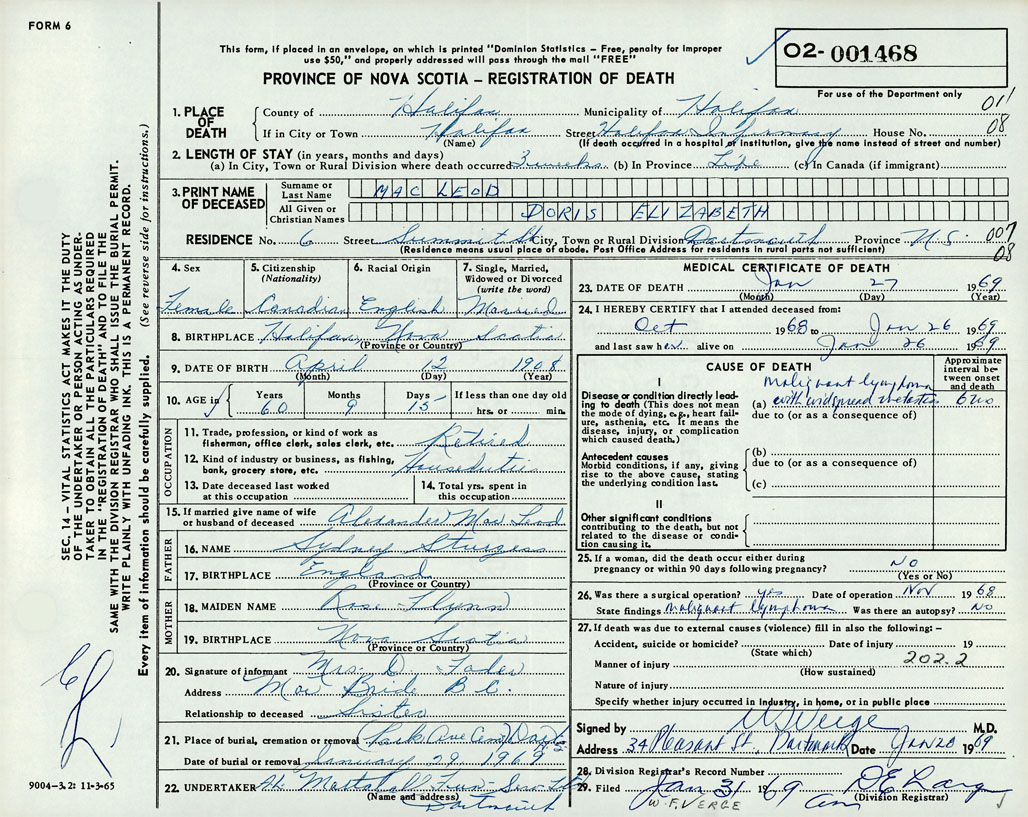 FORM 6
This form, if placed in an envelope, on which is printed "Dominion Statistics – Free, penalty for improper
use $50," and properly addressed will pass through the mail "FREE"
PROVINCE OF NOVA SCOTIA – REGISTRATION OF DEATH
02- 001468
For use of the Department only
011
08
1. PLACE OF DEATH
County of Halifax Municipality of Halifax
If in City or Town Halifax Street Halifax Infirmary House No.
(Name) (If death occurred in a hospital or institution, give the name instead of street and number)
2. LENGTH OF STAY (in years, months and days)
(a) In City, Town or Rural Division where death occurred 3 weeks (b) in Province Life (c) in Canada (if immigrant)
3. PRINT NAME OF DECEASED
Surname or Last Name MAC LEOD
All Given or Christian Names DORIS ELIZABETH
RESIDENCE No. 6 Street Summit St City, Town or Rural Division Dartmouth Province N.S
007
08
(Residence means usual place of abode. Post Office Address for residents in rural parts not sufficient)
4. Sex
Female
5. Citizenship (Nationality)
Canadian
6. Racial Origin
English
7. Single, Married, Widowed or Divorced (write the word)
Married
8. BIRTHPLACE Halifax Nova Scotia
(Province or Country)
9. DATE OF BIRTH April 12 1908
(Month) (Day) (Year)
10. AGE in Years Months Days If less than one day old
60 9 15 hrs. or min.
OCCUPATION
11. Trade, profession, or kind of work as
fisherman, office clerk, sales clerk, etc. Retired
12. Kind of industry or business, as fishing,
bank, grocery store, etc. Houseduties
13. Date deceased last worked
at this occupation
14. Total yrs. spent in
this occupation
15. If married give name of wife
or husband of deceased Alexander Mac Leod
FATHER
16. NAME Sydney Sturgess
17. BIRTHPLACE England
(Province or Country)
MOTHER
18. MAIDEN NAME Rose Flynn
19. BIRTHPLACE Nova Scotia
(Province or Country)
20. Signature of informant Mrs. D. Fader
Address Bride B.C.
Relationship to deceased Sister
21. Place of burial, cremation or removal Park Ave Cem Dart
Date of burial or removal January 29, 1969
22. UNDERTAKER Mattatall Fun Ser Ltd
(Name and address) Dartmouth
MEDICAL CERTIFICATE OF DEATH
23. DATE OF DEATH Jan 27 1969
(Month) (Day) (Year)
24. I HEREBY CERTIFY that I attended deceased from:
Oct 1968 to Jan 26 1969
and last saw her alive on Jan 26 1969
CAUSE OF DEATH
Approximate interval between onset and death
I
Disease or condition directly leading to death (This does not mean the mode of dying, e.g., heart failure, asthenia, etc. It means the disease, injury, or complication which caused death.)
malignant lymphoma
(a) with widspread metastasis 6 mo
due to (or as a consequence of)
Antecedent causes
Morbid conditions, if any, giving rise to the above cause, stating the underlying condition last.
(b)
due to (or as a consequence of)
(c)
II
Other significant conditions
contributing to the death, but not related to the disease or condition causing it.
25. If a woman, did the death occur either during
pregnancy or within 90 days following pregnancy? NO
(Yes or No)
26. Was there a surgical operation? yes Date of operation Nov 1968
State findings malignant lymphoma Was there an autopsy? No
27. If death was due to external causes (violence) fill in also the following: –
Accident, suicide or homicide? Date of injury 19
(State which)
Manner of injury 202.2
(How sustained)
Nature of injury
Specify whether injury occurred in industry, in home, or in public place
Signed by W F Verge M.D.
Address 34 Pleasant St. Dartmouth Date Jan 28 1969
28. Division Registrar's Record Number
29. Filed Jan 31 1969 D E Lang
(Division Registrar)
W.F. VERGE
9004–3.2: 11-3-65
SEC. 14 – VITAL STATISTICS ACT MAKES IT THE DUTY
OF THE UNDERTAKER OR PERSON ACTING AS UNDER-
TAKER TO OBTAIN ALL THE PARTICULARS REQUIRED
IN THE "REGISTRATION OF DEATH" AND TO FILE THE
SAME WITH THE DIVISION REGISTRAR WHO SHALL ISSUE THE BURIAL PERMIT.
WRITE PLAINLY WITH UNFADING INK. THIS IS A PERMANENT RECORD.
Every item of information should be carefully supplied. (See reverse side for instructions.)